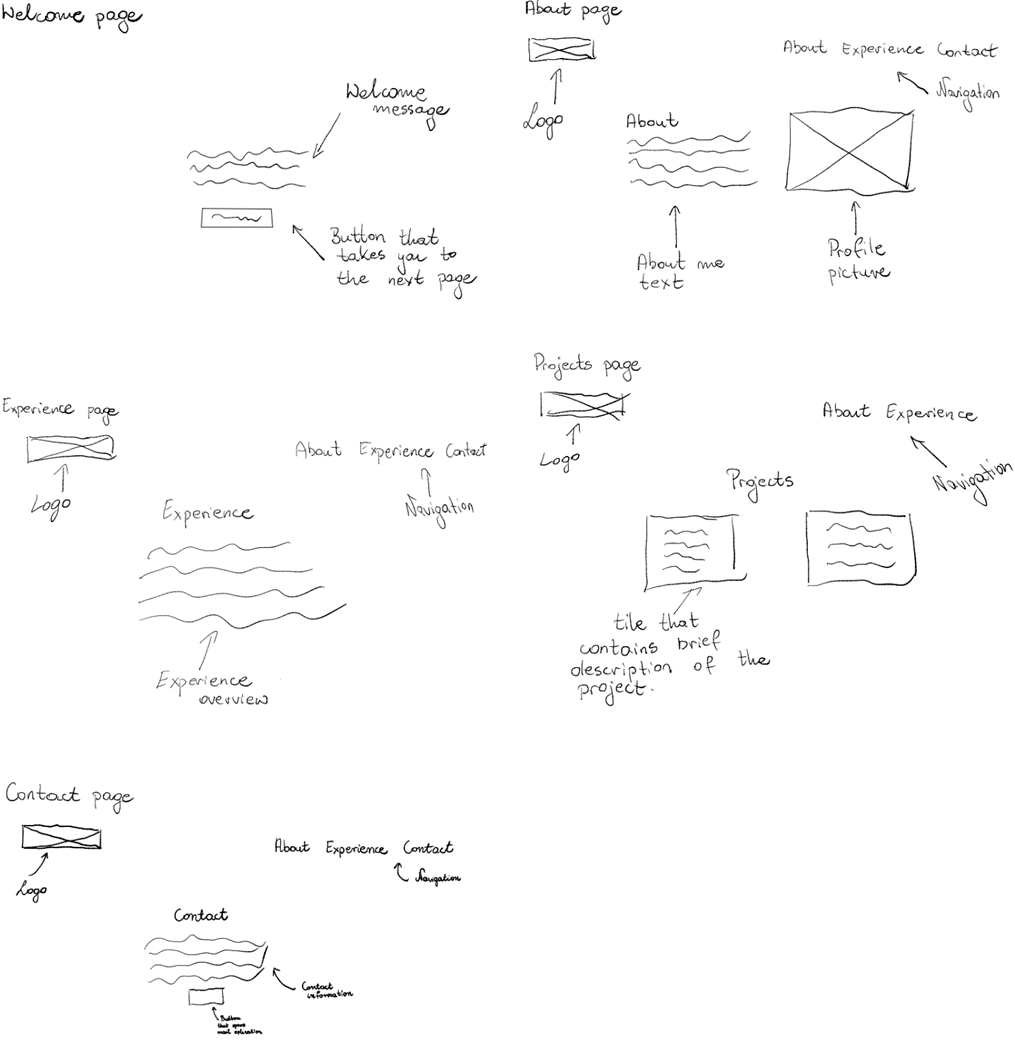 Welcome page
Welcome
message
Button that
takes you to
the next page
About page
Logo
About Experience Contact
Navigation
About
About me
text
Profile
picture
Experience page
Logo
About Experience Contact
Navigation
Experience
Experience
overview
Projects page
Logo
About Experience
Navigation
Projects
tile that
contains brief
description of the
project.
Contact page
Logo
About Experience Contact
Navigation
Contact
Contact
information
Button
that opens
mail aplication